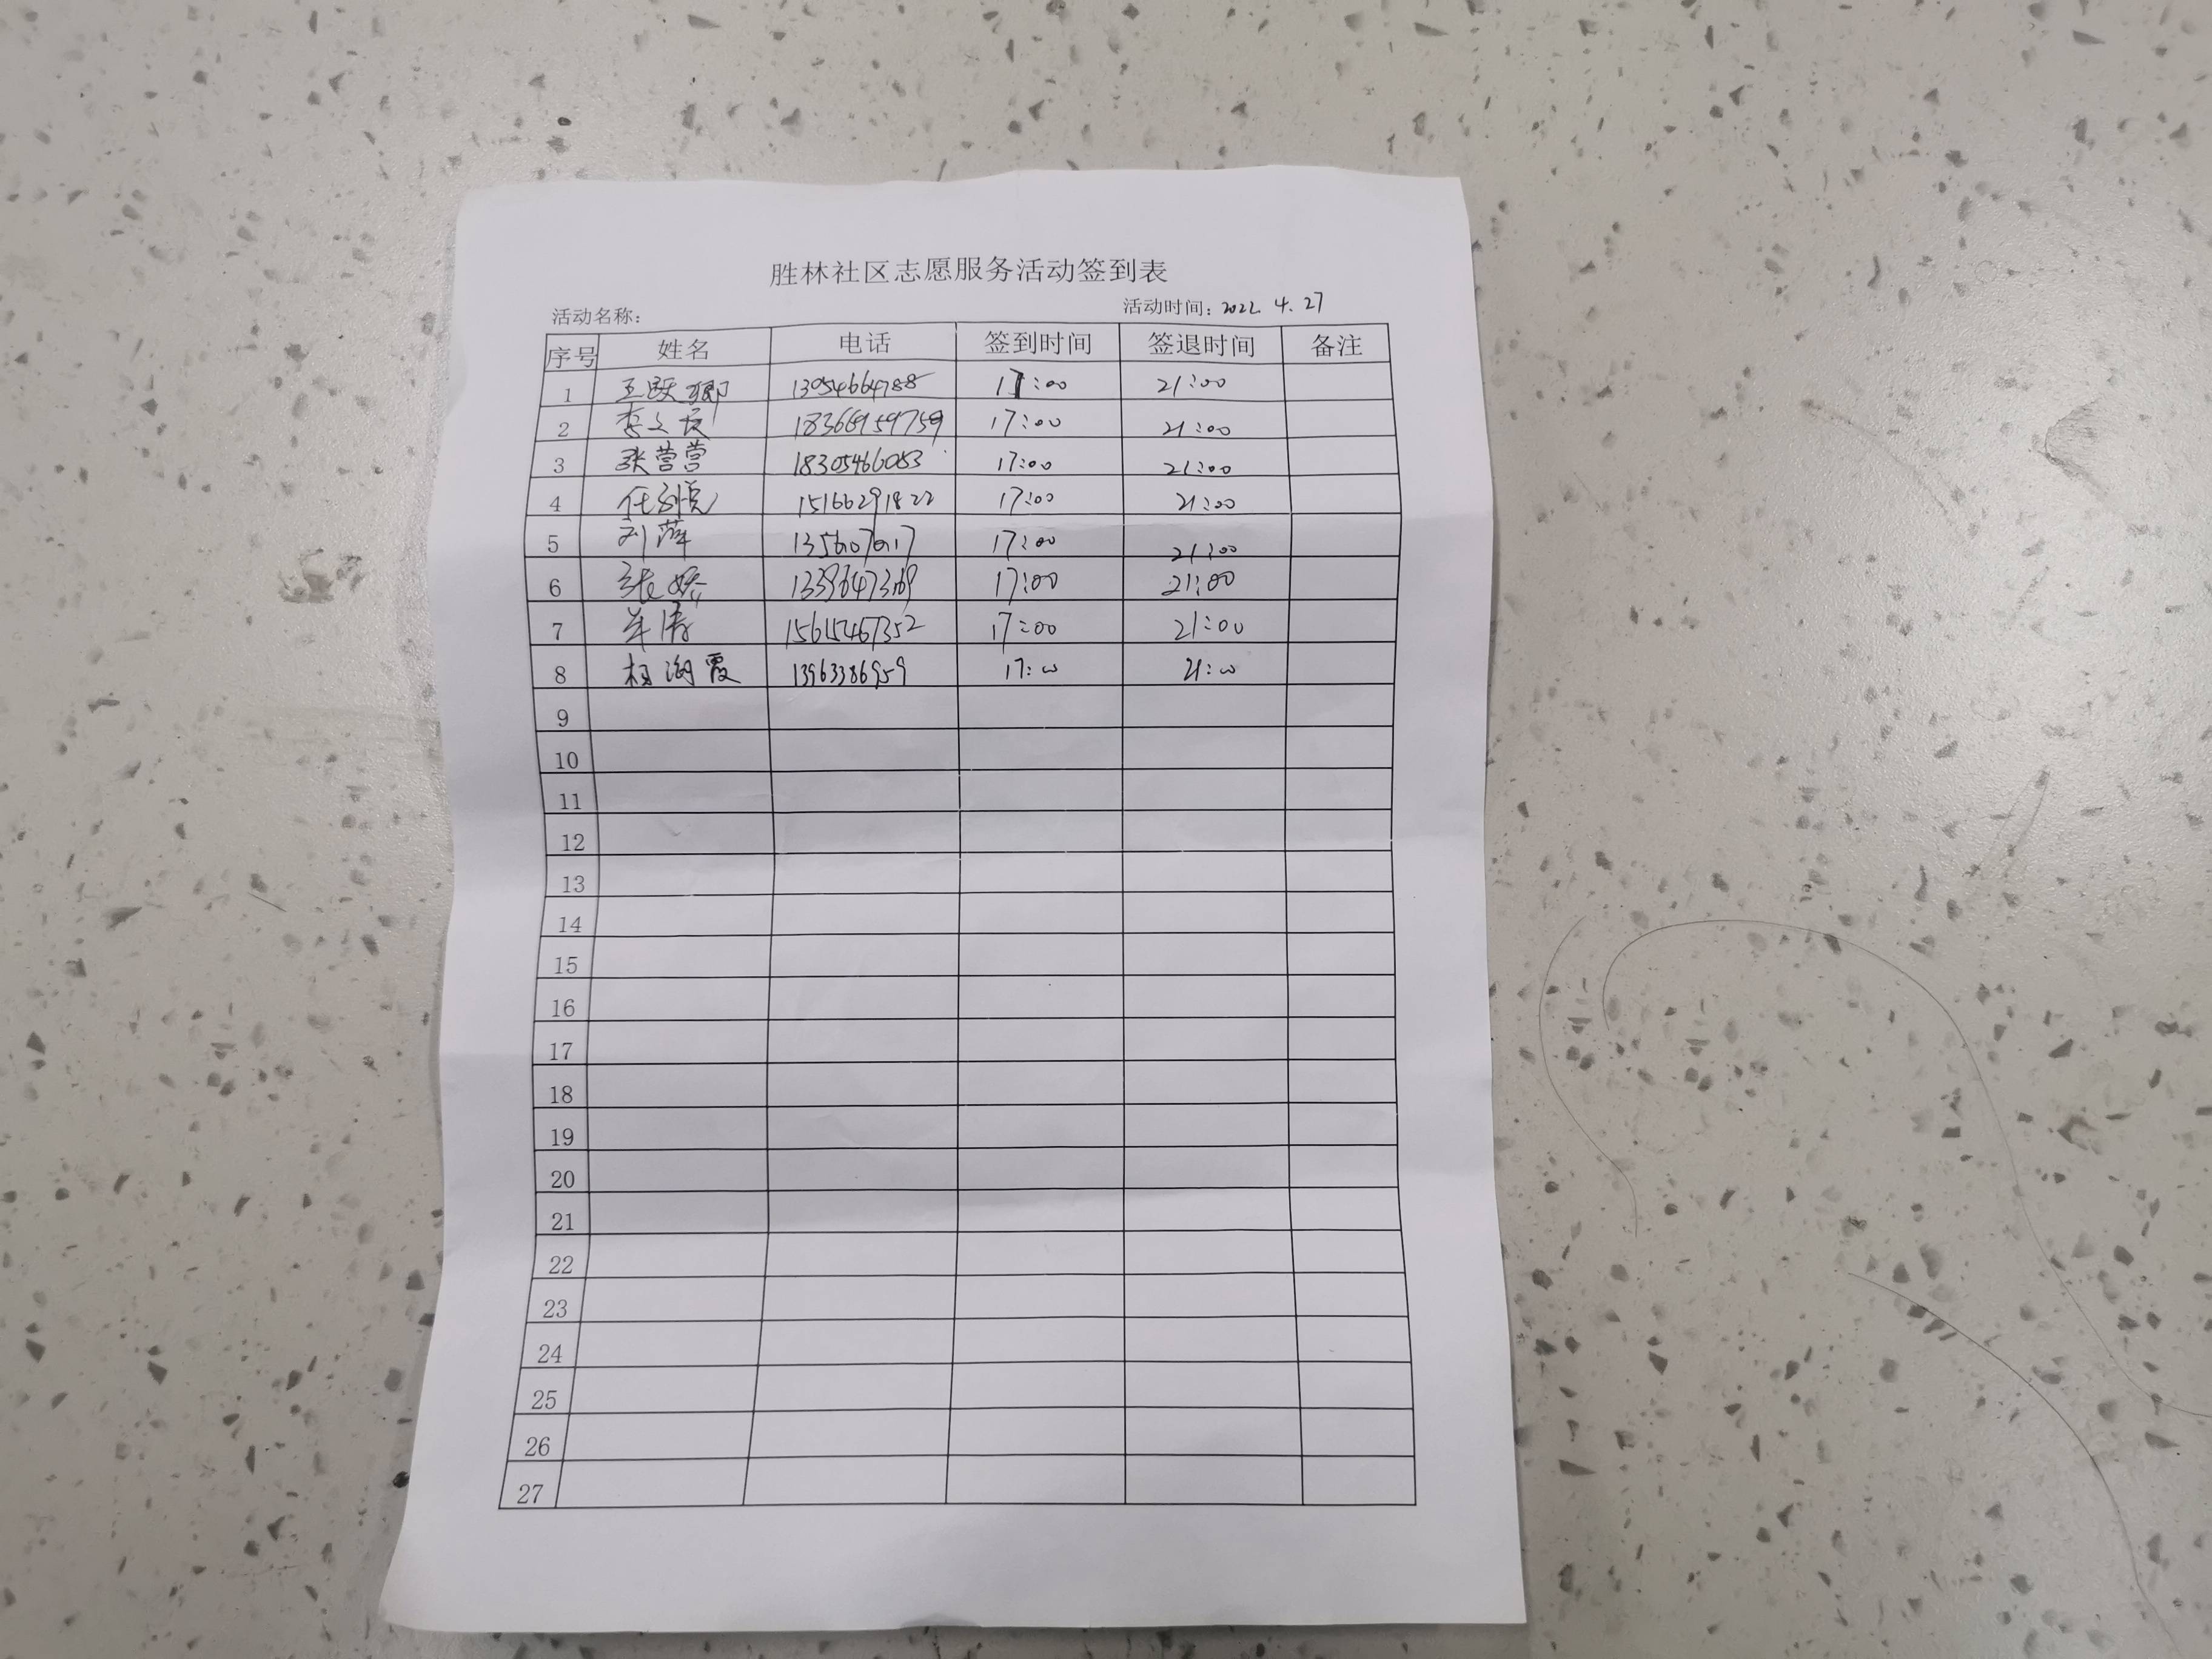 胜林社区志愿服务活动签到表
活动名称： 活动时间：2022.4.27
序号 姓名 电话 签到时间 签退时间 备注
1 13054664788 17:00 21:00
2 18366959759 17:00 21:00
3 张营营 18305466083 17:00 21:00
4 15166291822 17:00 21:00
5 刘萍 17:00 21:00
6 张娇 17:00 21:00
7 17:00 21:00
8 杨海霞 13963386959 17:00 21:00
9
10
11
12
13
14
15
16
17
18
19
20
21
22
23
24
25
26
27